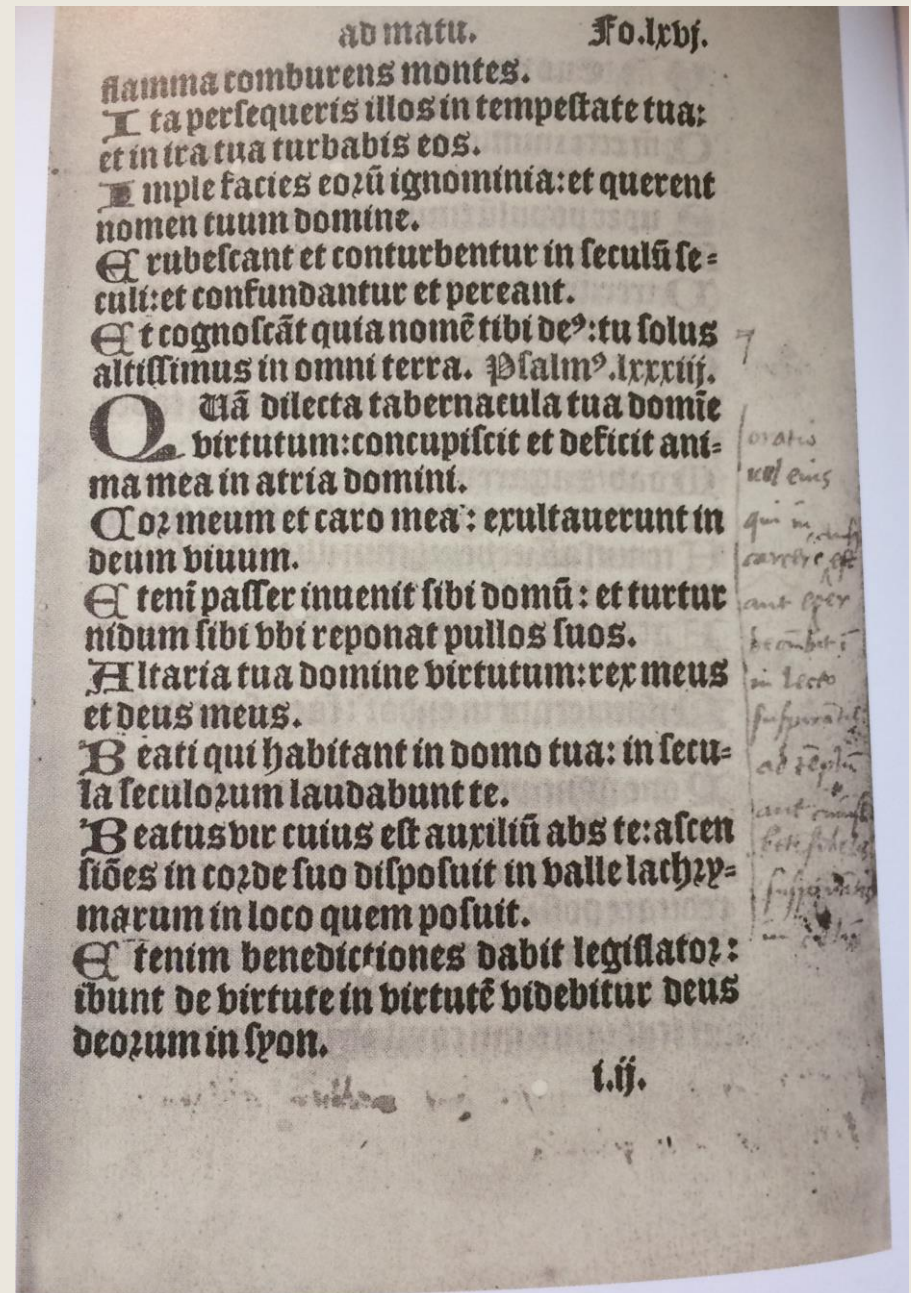 ad matu. Fo.lxvj.
flamma comburens montes.
Ita persequeris illos in tempestate tua:
et in ira tua turbabis eos.
Imple facies eorū ignominia: et querent
nomen tuum domine.
Erubescant et conturbentur in seculū se=
culi: et confundantur et pereant.
Et cognoscāt quia nomē tibi deꝰ: tu solus
altissimus in omni terra. Psalmꝰ.lxxxiij.
QUā dilecta tabernacula tua domīe
virtutum: concupiscit et deficit ani=
ma mea in atria domini.
Cor meum et caro mea: exultauerunt in
deum viuum.
Etenī passer inuenit sibi domū: et turtur
nidum sibi vbi reponat pullos suos.
Altaria tua domine virtutum: rex meus
et deus meus.
Beati qui habitant in domo tua: in secu=
la seculorum laudabunt te.
Beatus vir cuius est auxiliū abs te: ascen
siōes in corde suo disposuit in valle lachry=
marum in loco quem posuit.
Etenim benedictiones dabit legislator:
ibunt de virtute in virtutē videbitur deus
deorum in syon.
i.ij.
oratio
vel eius
qui in
carcere est
aut eger
in lecto